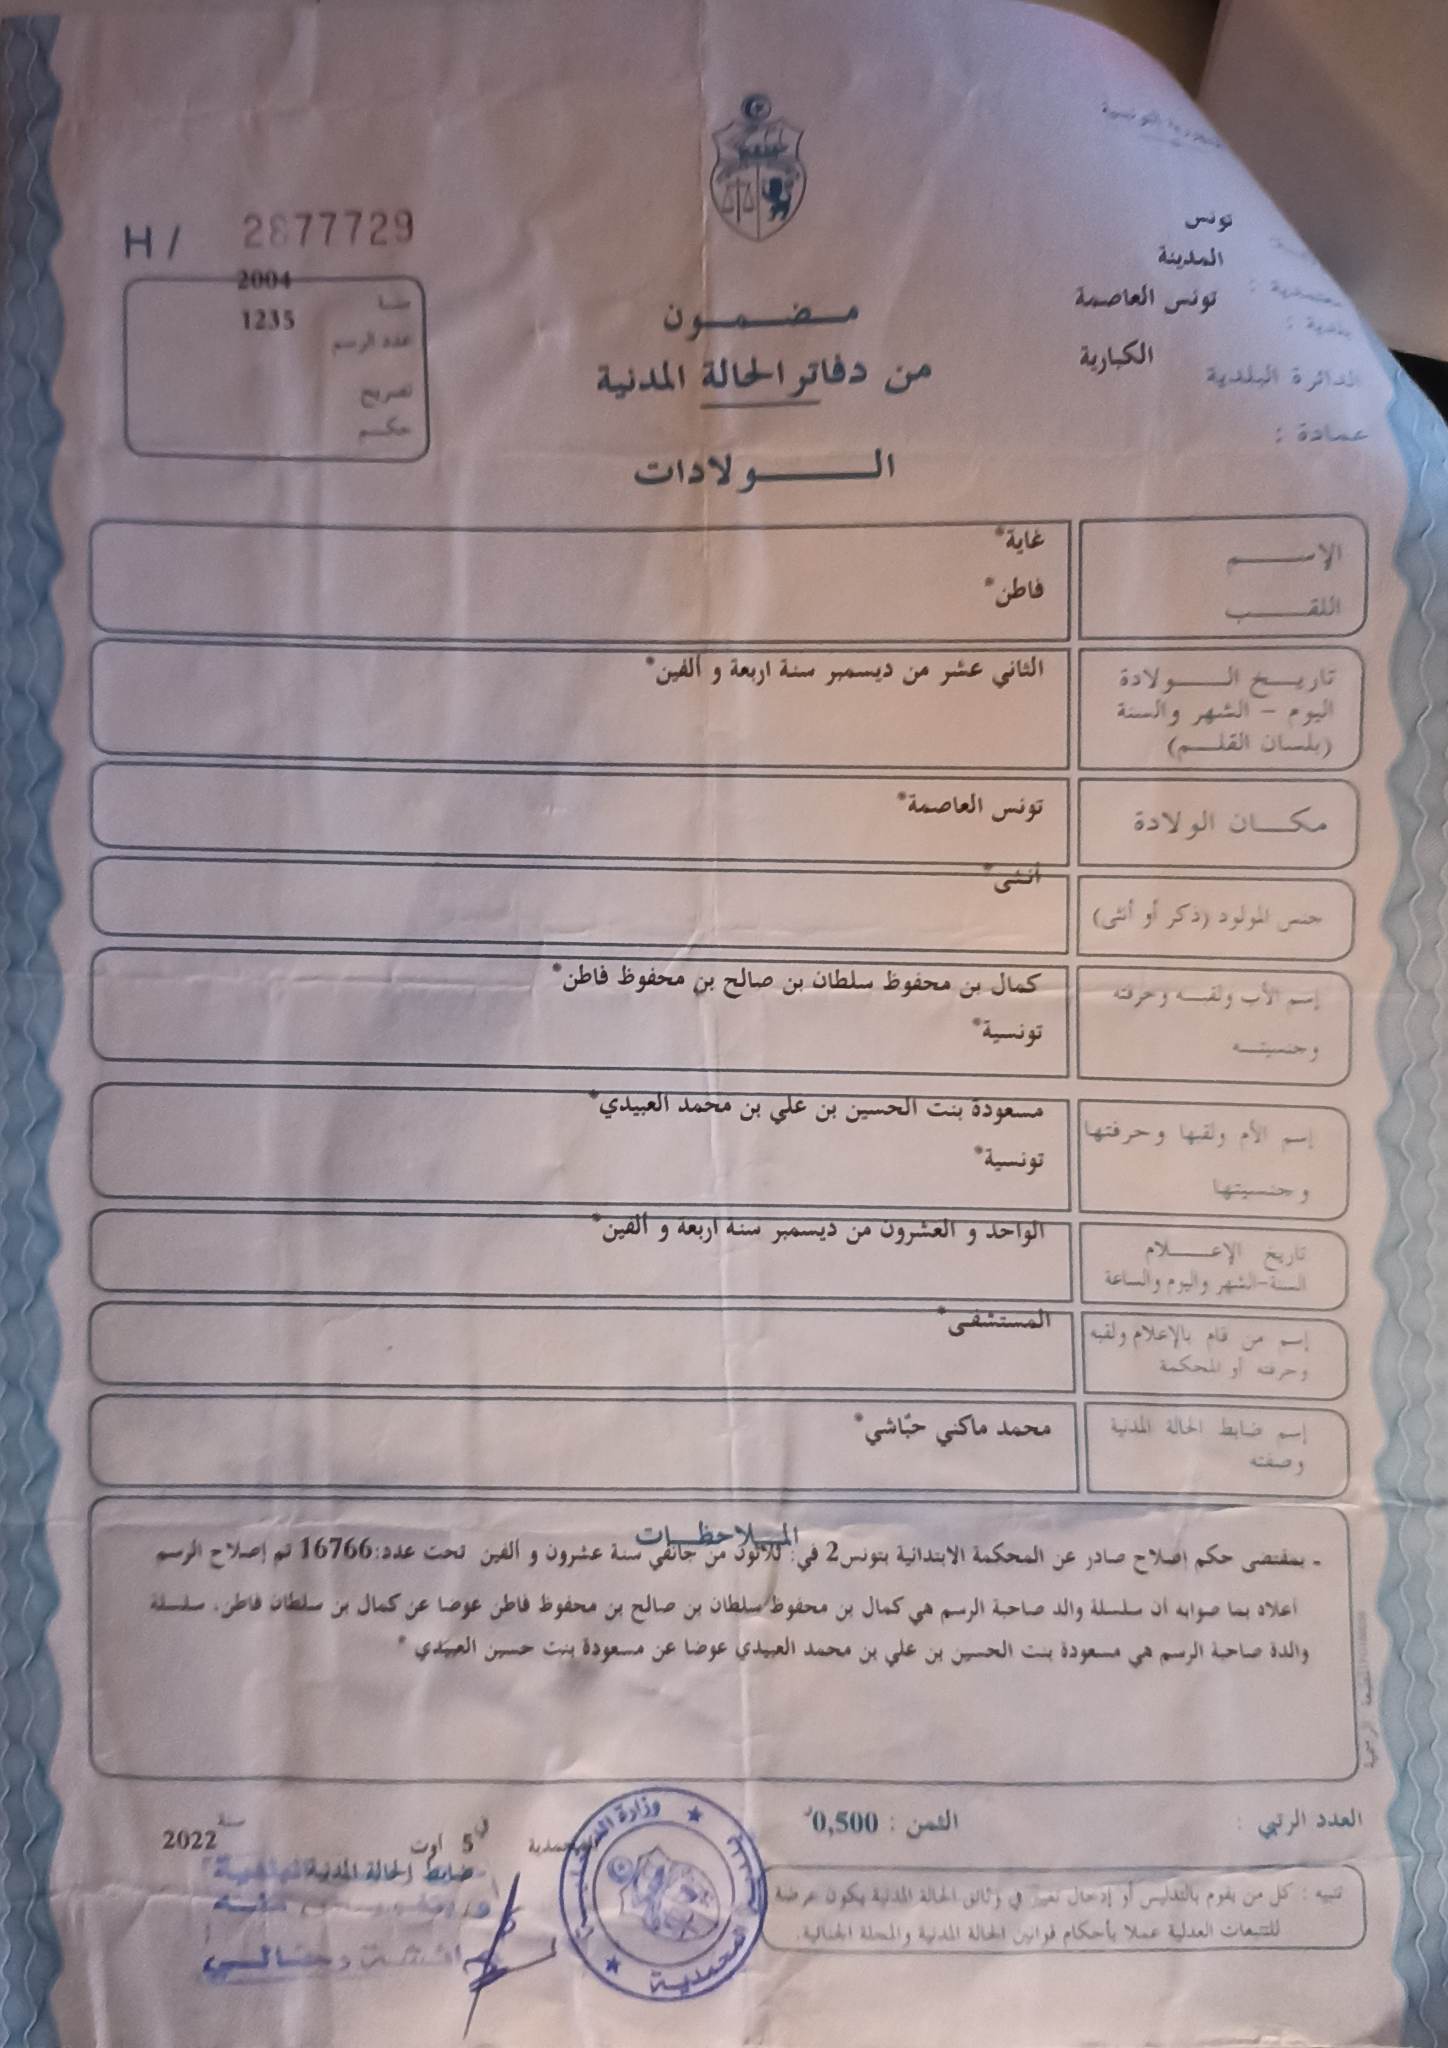 الجمهورية التونسية
H / 2877729
تونس
المدينة
معتمدية :
تونس العاصمة
بلدية :
الكبارية
الدائرة البلدية
عمادة :
2004
1235
عدد الرسم
تصريح
حكم
مضمون
من دفاتر الحالة المدنية
الولادات
الإسم
غاية*
اللقب
فاطن*
تاريخ الولادة
اليوم - الشهر والسنة
(بلسان القلم)
الثاني عشر من ديسمبر سنة اربعة و ألفين*
مكان الولادة
تونس العاصمة*
جنس المولود (ذكر أو أنثى)
أنثى*
إسم الأب ولقبه وحرفته
وجنسيته
كمال بن محفوظ سلطان بن صالح بن محفوظ فاطن*
تونسية*
إسم الأم ولقبها وحرفتها
وجنسيتها
مسعودة بنت الحسين بن علي بن محمد العبيدي*
تونسية*
تاريخ الإعلام
السنة-الشهر واليوم والساعة
الواحد و العشرون من ديسمبر سنة اربعة و ألفين*
إسم من قام بالإعلام ولقبه
وحرفته أو المحكمة
المستشفى*
إسم ضابط الحالة المدنية
وصفته
محمد ماكني حبّاشي*
الملاحظات
- بمقتضى حكم إصلاح صادر عن المحكمة الابتدائية بتونس2 في: ثلاثون من جانفي سنة عشرون و ألفين تحت عدد:16766 تم إصلاح الرسم
أعلاه بما صوابه أن سلسلة والد صاحبة الرسم هي كمال بن محفوظ سلطان بن صالح بن محفوظ فاطن عوضا عن كمال بن سلطان فاطن، سلسلة
والدة صاحبة الرسم هي مسعودة بنت الحسين بن علي بن محمد العبيدي عوضا عن مسعودة بنت حسين العبيدي *
العدد الرتبي :
الثمن : 0,500
المحمدية في 5 أوت سنة 2022
ضابط الحالة المدنية
تنبيه : كل من يقوم بالتدليس أو إدخال تغيير في وثائق الحالة المدنية يكون عرضة
للتتبعات العدلية عملا بأحكام قوانين الحالة المدنية والمجلة الجنائية.